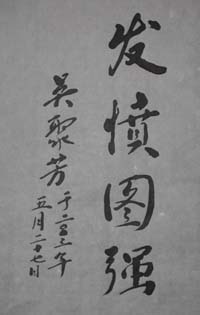 发愤图强
吴聚芳
于二〇〇三年
五月二十七日